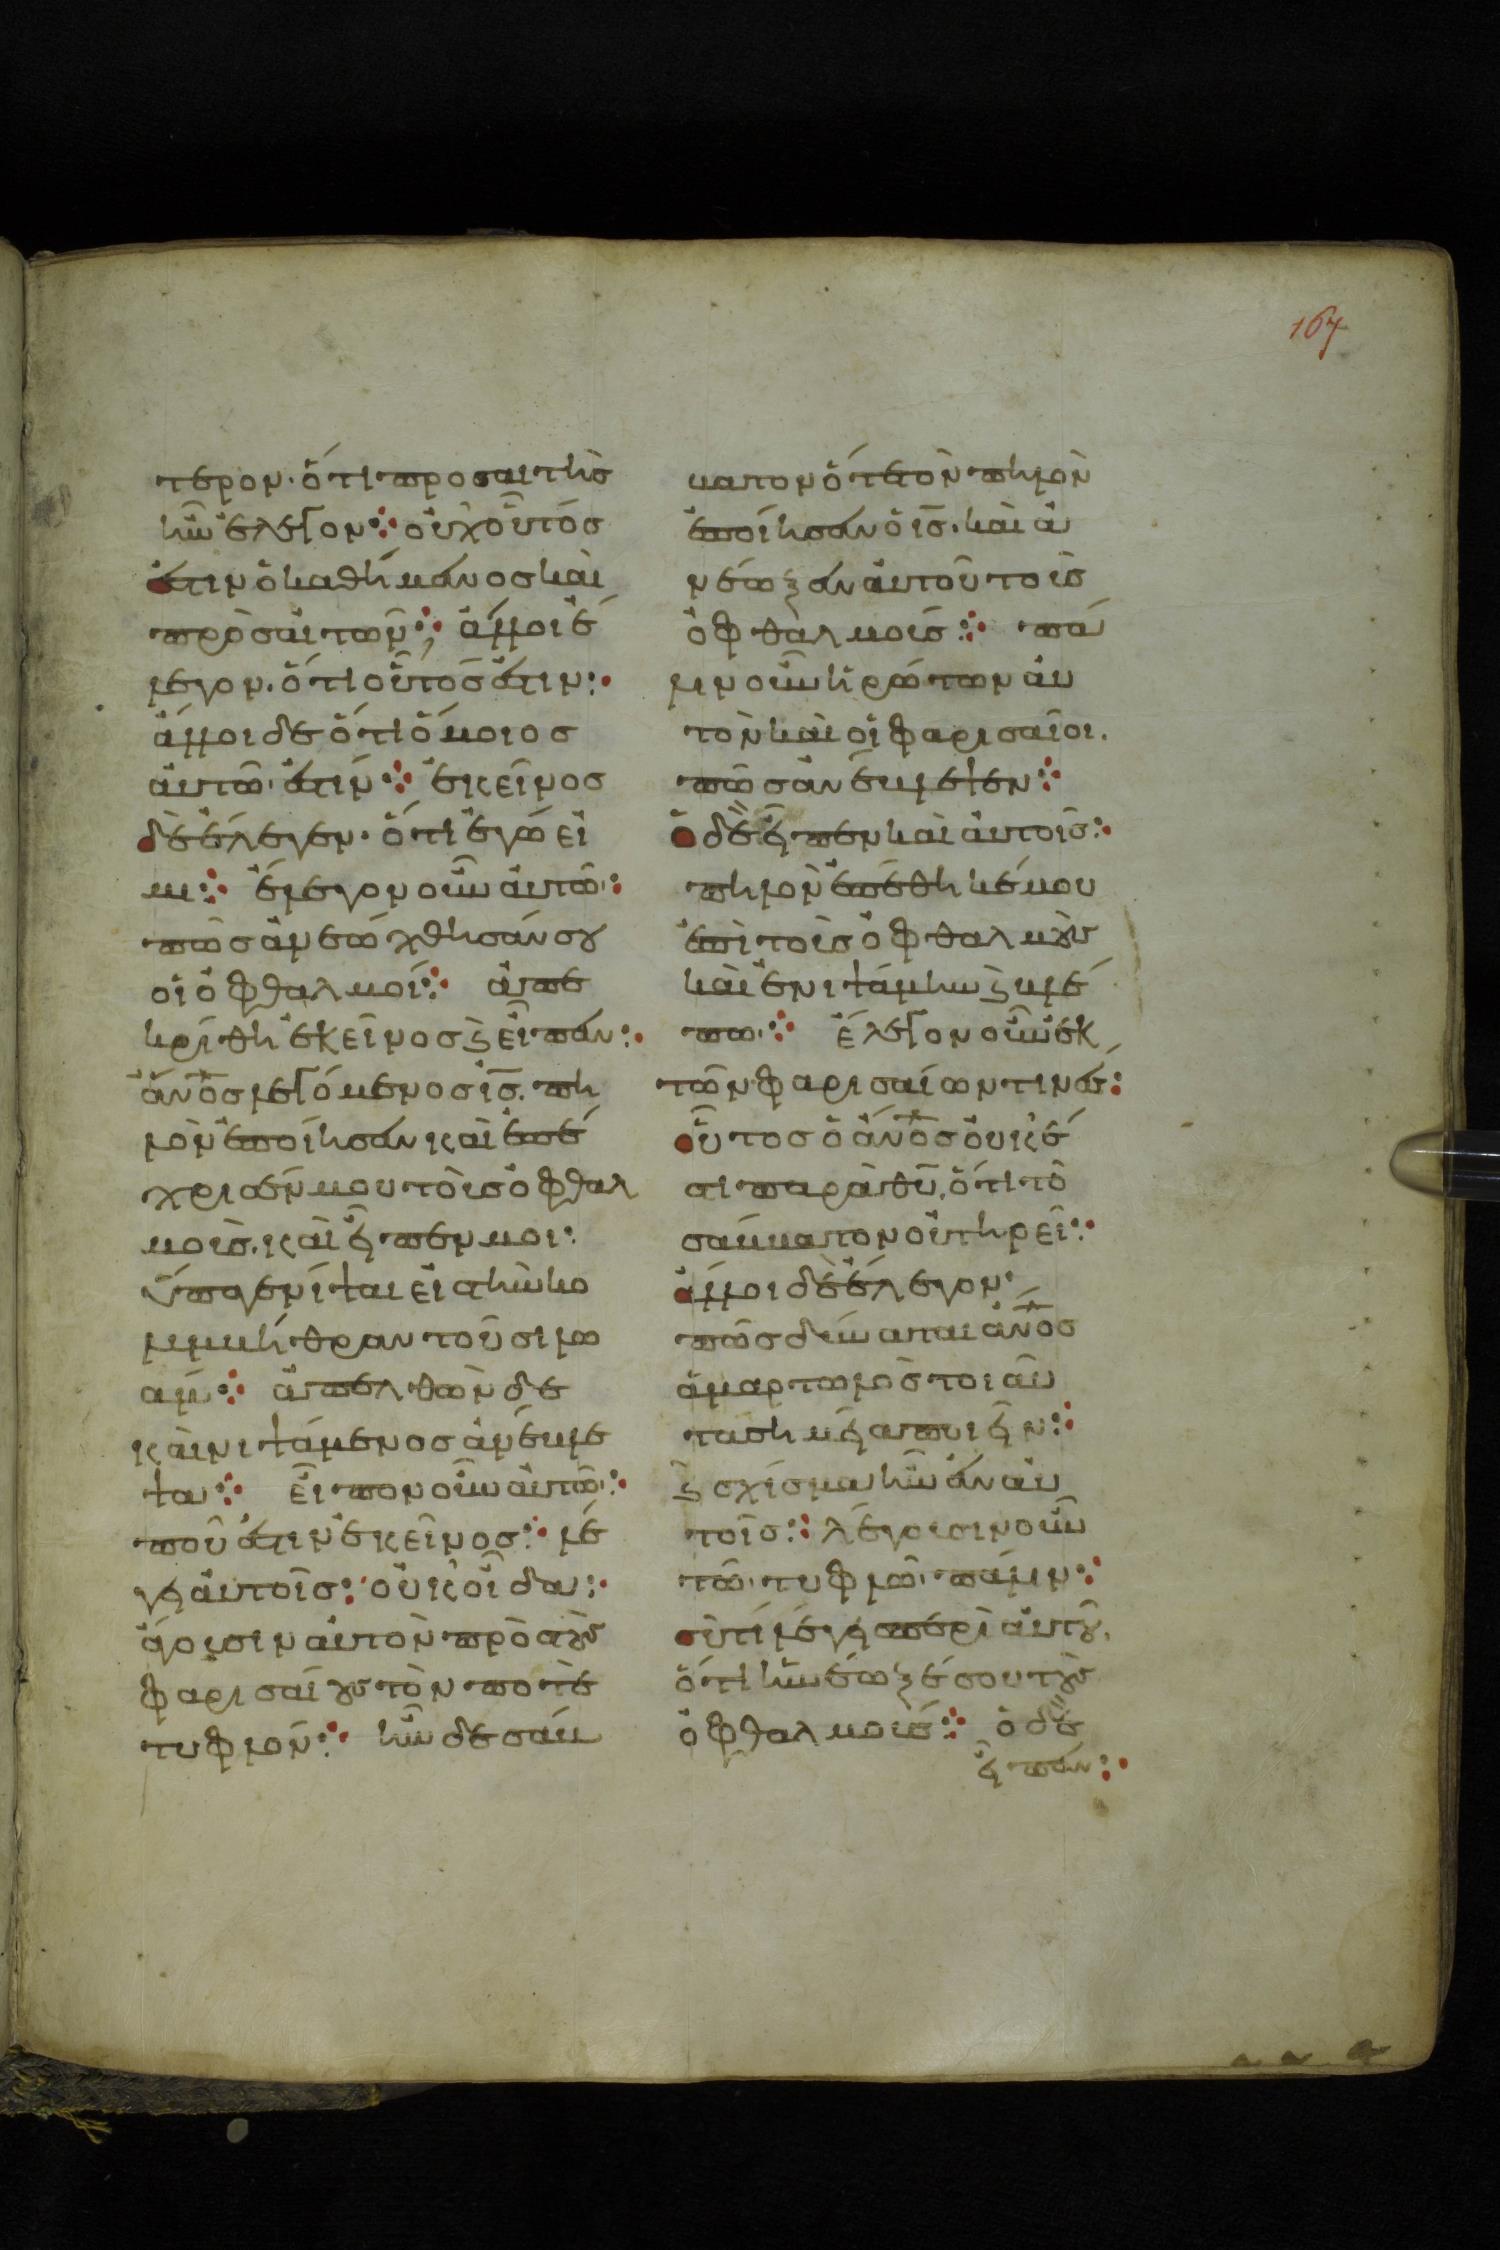 167
τερον· ὅτι προσαιτὴς
ἦν ἔλεγον· οὐχ οὗτός
ἐστιν ὁ καθήμενος καὶ
προσαιτῶν; ἄλλοι ἔ
λεγον· ὅτι οὗτος ἐστιν·
ἄλλοι δὲ ὅτι ὅμοιος
αὐτῶ ἐστίν· ἐκεῖνος
δὲ ἔλεγεν· ὅτι ἐγώ εἰ
μι· ἔλεγον οὖν αὐτῶ·
πῶς ἀνεώχθησάν σου
οἱ ὀφθαλμοί· ἀπε
κρίθη ἐκεῖνος ϗ εἶπεν·
ἄνος λεγόμενος ις· πη
λὸν ἐποίησεν καὶ ἐπέ
χρισέν μου τοὺς ὀφθαλ
μοὺς· καὶ εἶπεν μοι·
ὕπαγε νίψαι εἰς τὴν κο
λυμβήθραν τοῦ σιλω
αμ· ἀπελθὼν δὲ
καὶ νιψάμενος ἀνέβλε
ψα· εἶπον οὖν αὐτῶ·
ποῦ ἐστιν ἐκεῖνος· λέ
γει αὐτοῖς· οὐκ οἶδα·
ἄγουσιν αὐτὸν πρὸς τοὺς
φαρισαίους τὸν ποτὲ
τυφλόν· ἦν δὲ σάβ
βατον ὅτε τὸν πηλὸν
ἐποίησεν ὁ ις· καὶ ἀ
νέωξεν αὐτοῦ τοὺς
ὀφθαλμούς· πά
λιν οὖν ἠρώτων αὐ
τὸν καὶ οἱ φαρισαῖοι·
πῶς ἀνέβλεψεν·
ὁ δὲ εἶπεν καὶ αὐτοῖς·
πηλὸν ἐπέθηκέ μου
ἐπὶ τοὺς ὀφθαλμοὺς
καὶ ἐνιψάμην ϗ βλέ
πω· ἔλεγον οὖν ἐκ
τῶν φαρισαίων τινές·
οὗτος ὁ ἄνος οὐκ ἔ
στι παρὰ θυ, ὅτι τὸ
σάββατον οὐ τηρεῖ·
ἄλλοι δὲ ἔλεγον·
πῶς δύναται ἄνος
ἁμαρτωλὸς τοιαῦ
τα σημεῖα ποιεῖν·
ϗ σχίσμα ἦν ἐν αὐ
τοῖς· λέγουσιν οὖν
τῶ τυφλῶ πάλιν·
σὺ τί λέγεις περὶ αὐτοῦ,
ὅτι ἤνέωξέ σου τοὺς
ὀφθαλμούς· ὁ δὲ
εἶπεν·